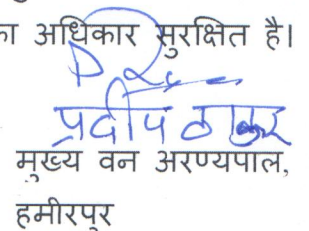 का अधिकार सुरक्षित है।
प्रदीप ठाकुर
मुख्य वन अरण्यपाल,
हमीरपुर